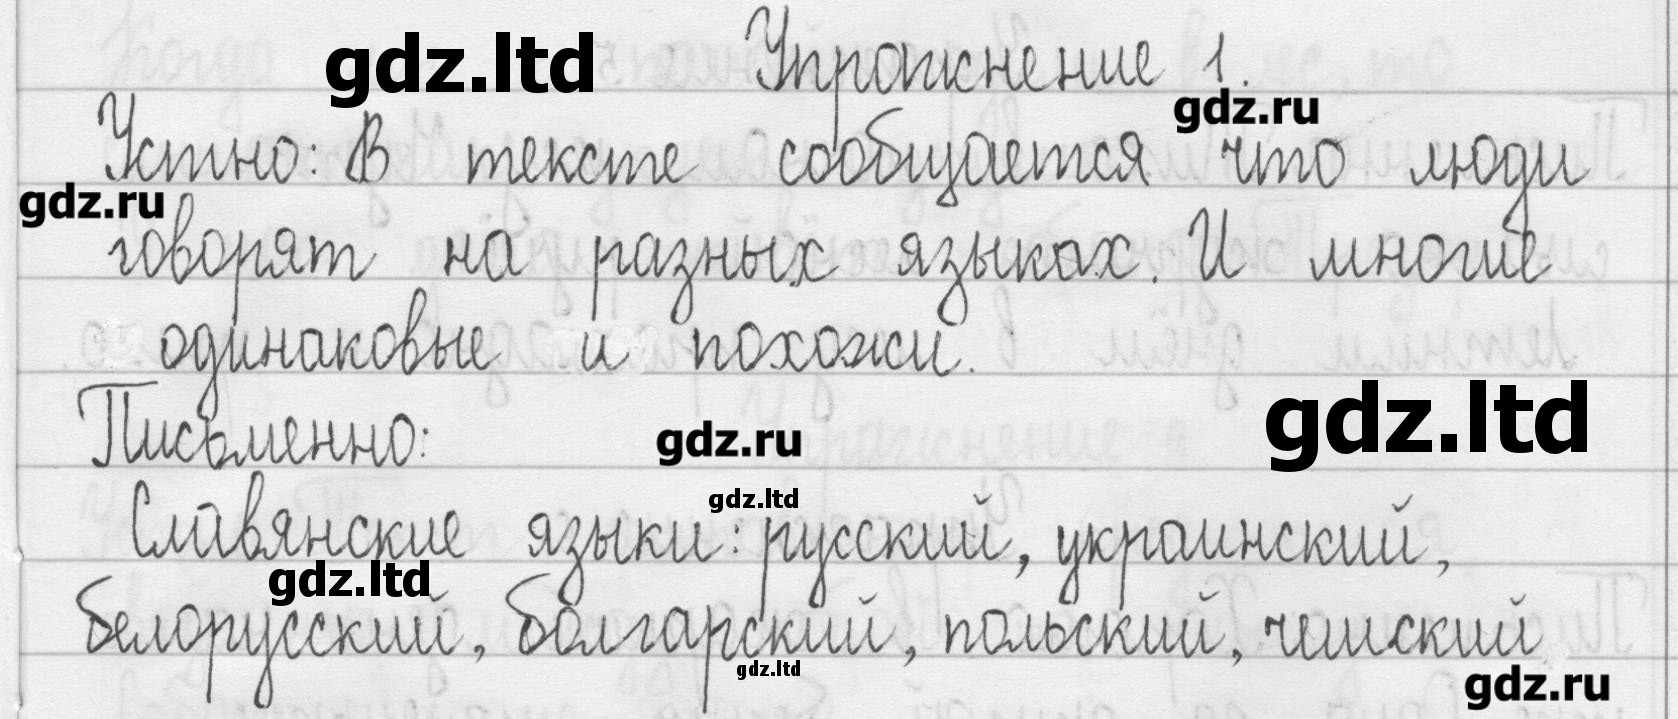 gdz.ltd Упражнение 1.
gdz.ru
Устно: В тексте сообщается что люди
gdz.ru
говорят на разных языках. И многие
одинаковые и похожи.
gdz.ltd
Письменно:
gdz.ru
gdz.ltd
Славянские языки: русский, украинский,
gdz.ltd
белорусский, болгарский, польский, чешский
gdz.ltd
gdz.ru